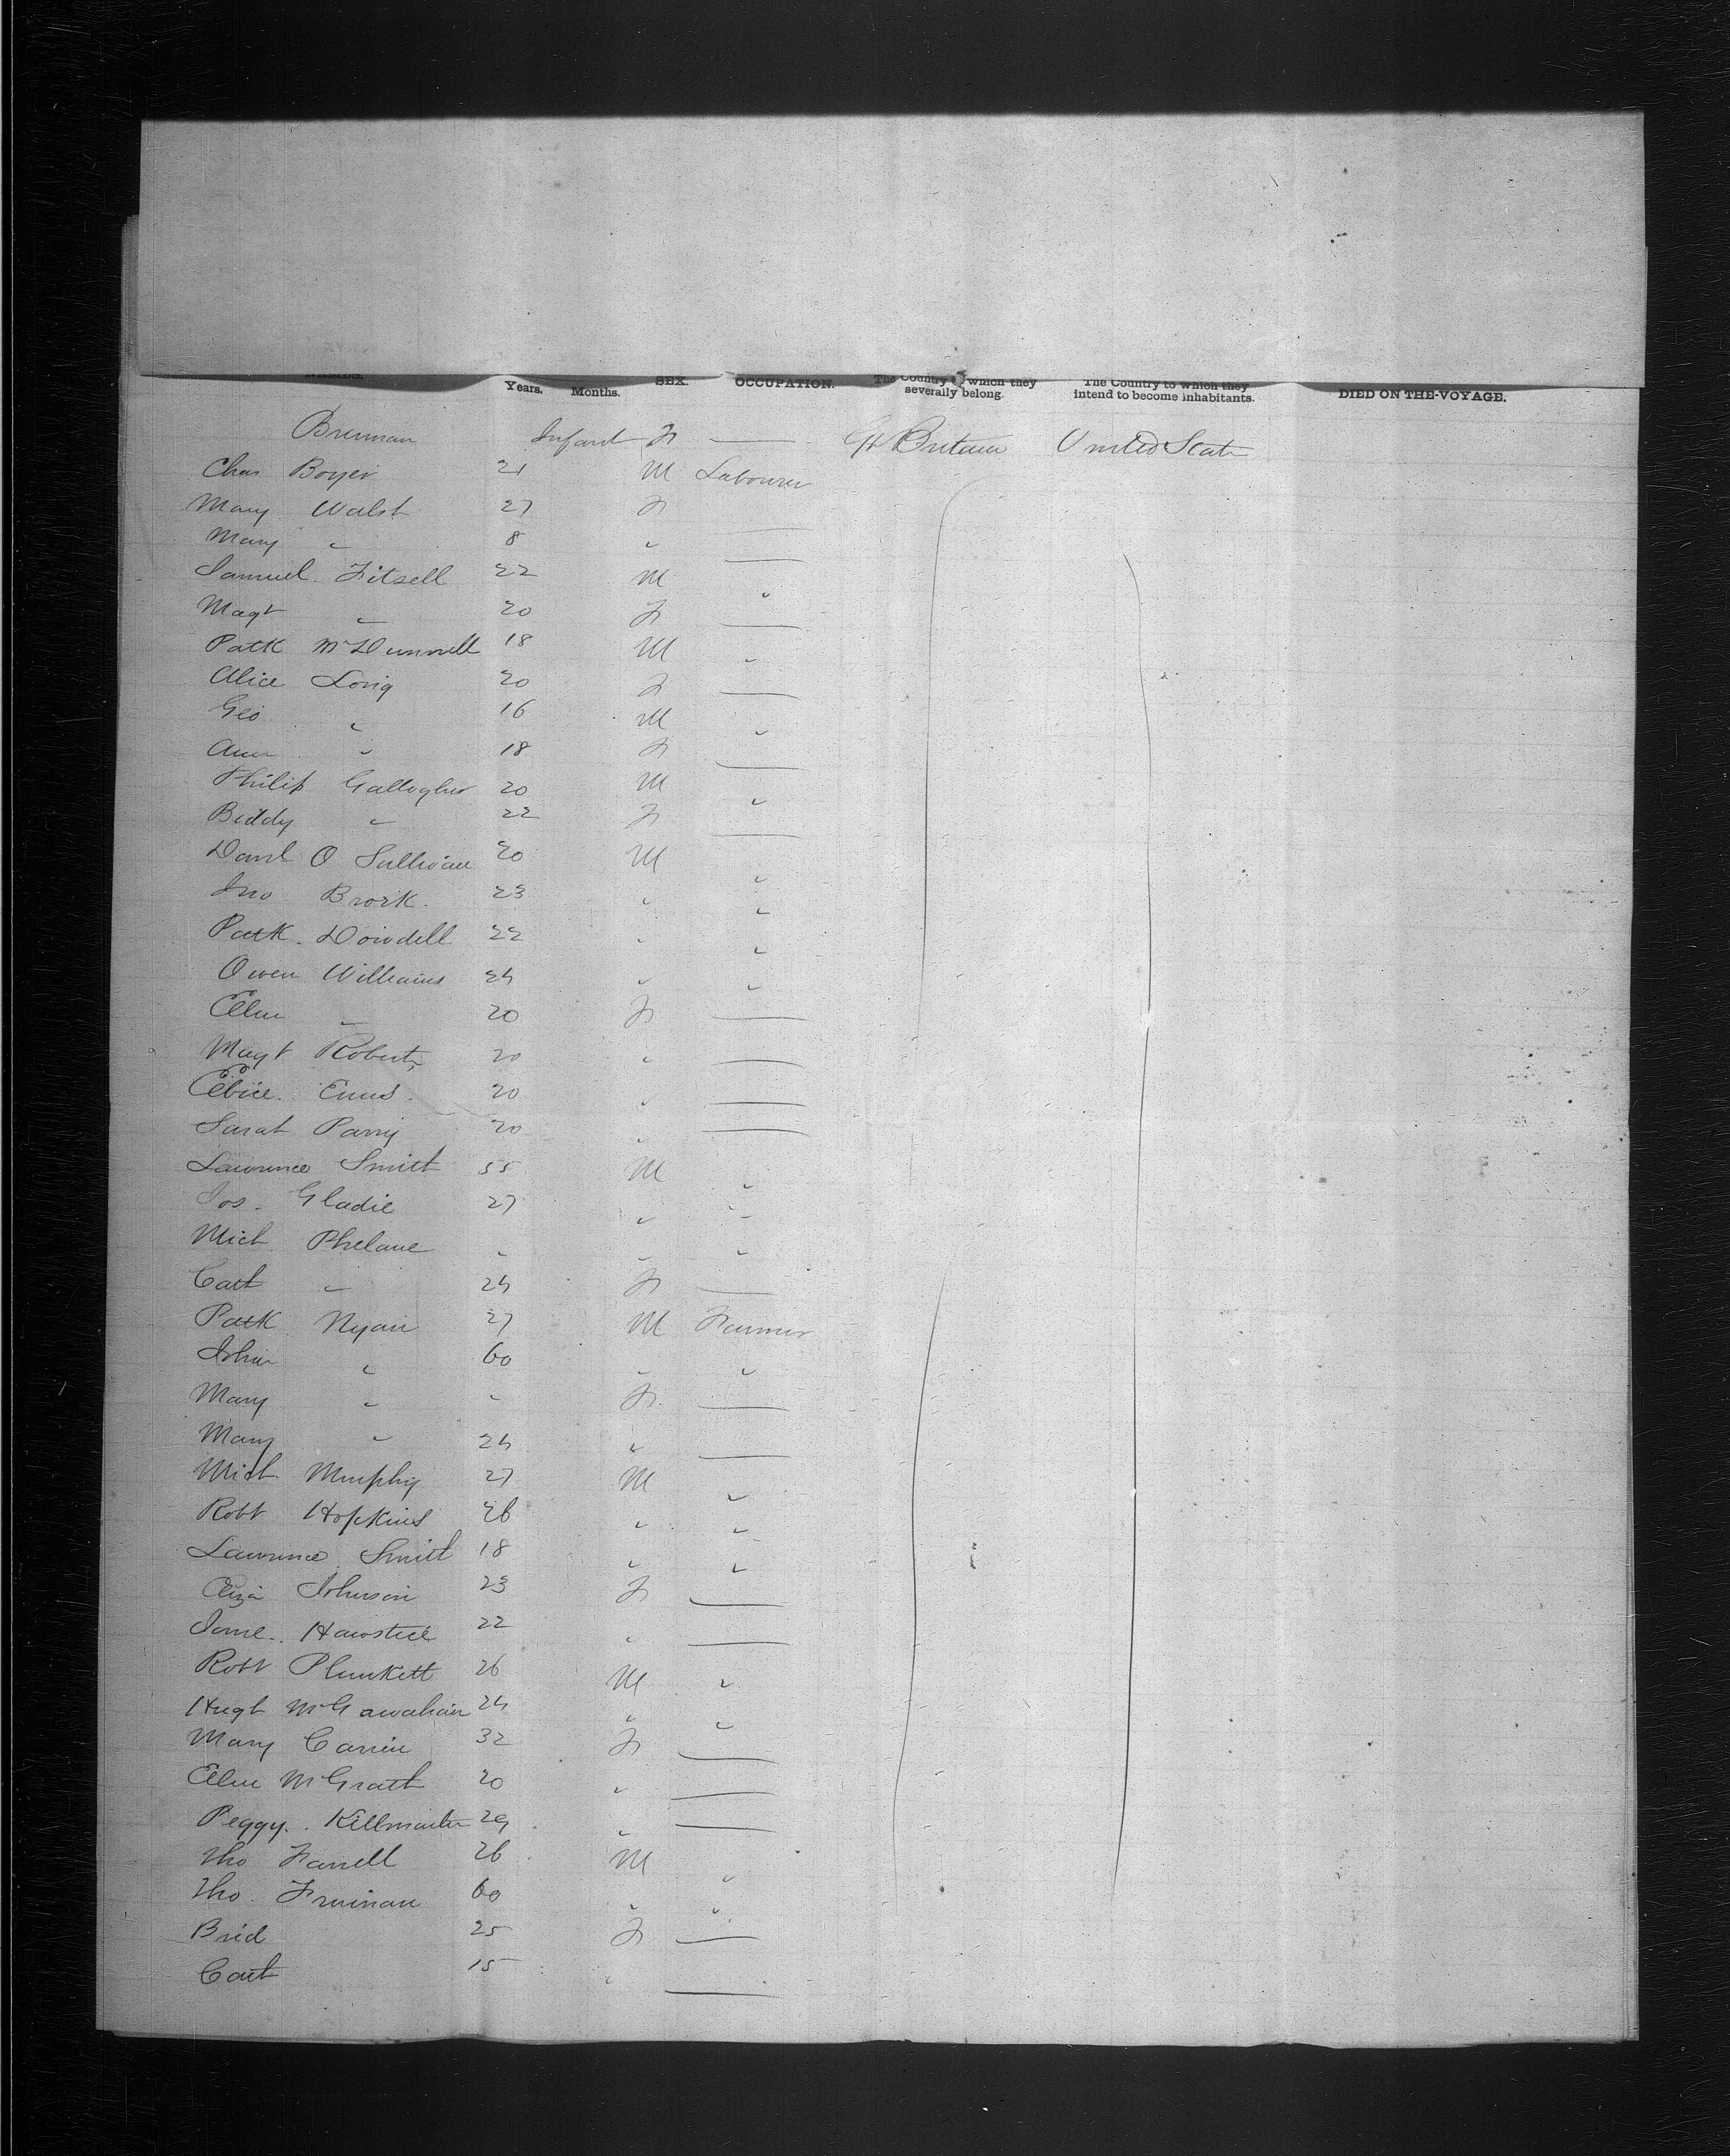 NAMES. Years. Months. SEX. OCCUPATION. The Country to which they severally belong. The Country to which they intend to become inhabitants. DIED ON THE VOYAGE.
Brennan Infant F — Gt Britain United States
Chas Boyer 21 M Labourer
Mary Walsh 27 F —
Mary " 8 " —
Samuel Fitsell 22 M "
Magt " 20 F —
Patk McDunnell 18 M "
Alice Long 20 F —
Geo " 16 M "
Ann " 18 F —
Philip Gallogher 20 M "
Biddy " 22 F —
Danl O Sullivan 20 M "
Jno Brork 23 " "
Patk Dowdell 22 " "
Owen Williams 24 " "
Ellen " 20 F —
Magt Roberts 20 " —
20 " —
Sarah Parry 20 " —
Lawrence Smith 55 M "
Jos. Gladie 27 " "
Mich Phelane " " "
Cath " 24 F —
Patk Nyan 27 M Farmer
John " 60 " "
Mary " " F —
Mary " 24 " —
Mich Murphy 27 M "
Robt Hopkins 26 " "
Lawrence Smith 18 " "
Eliza Johnson 23 F —
Jane 22 " —
Robt Plunkett 26 M "
Hugh McGawahan 24 " "
Mary Carrin 32 F —
Ellen McGrath 20 " —
Peggy Killmartin 29 " —
Tho Farrell 26 M "
Tho. 60 " "
Brid 25 F —
Cath 15 " —